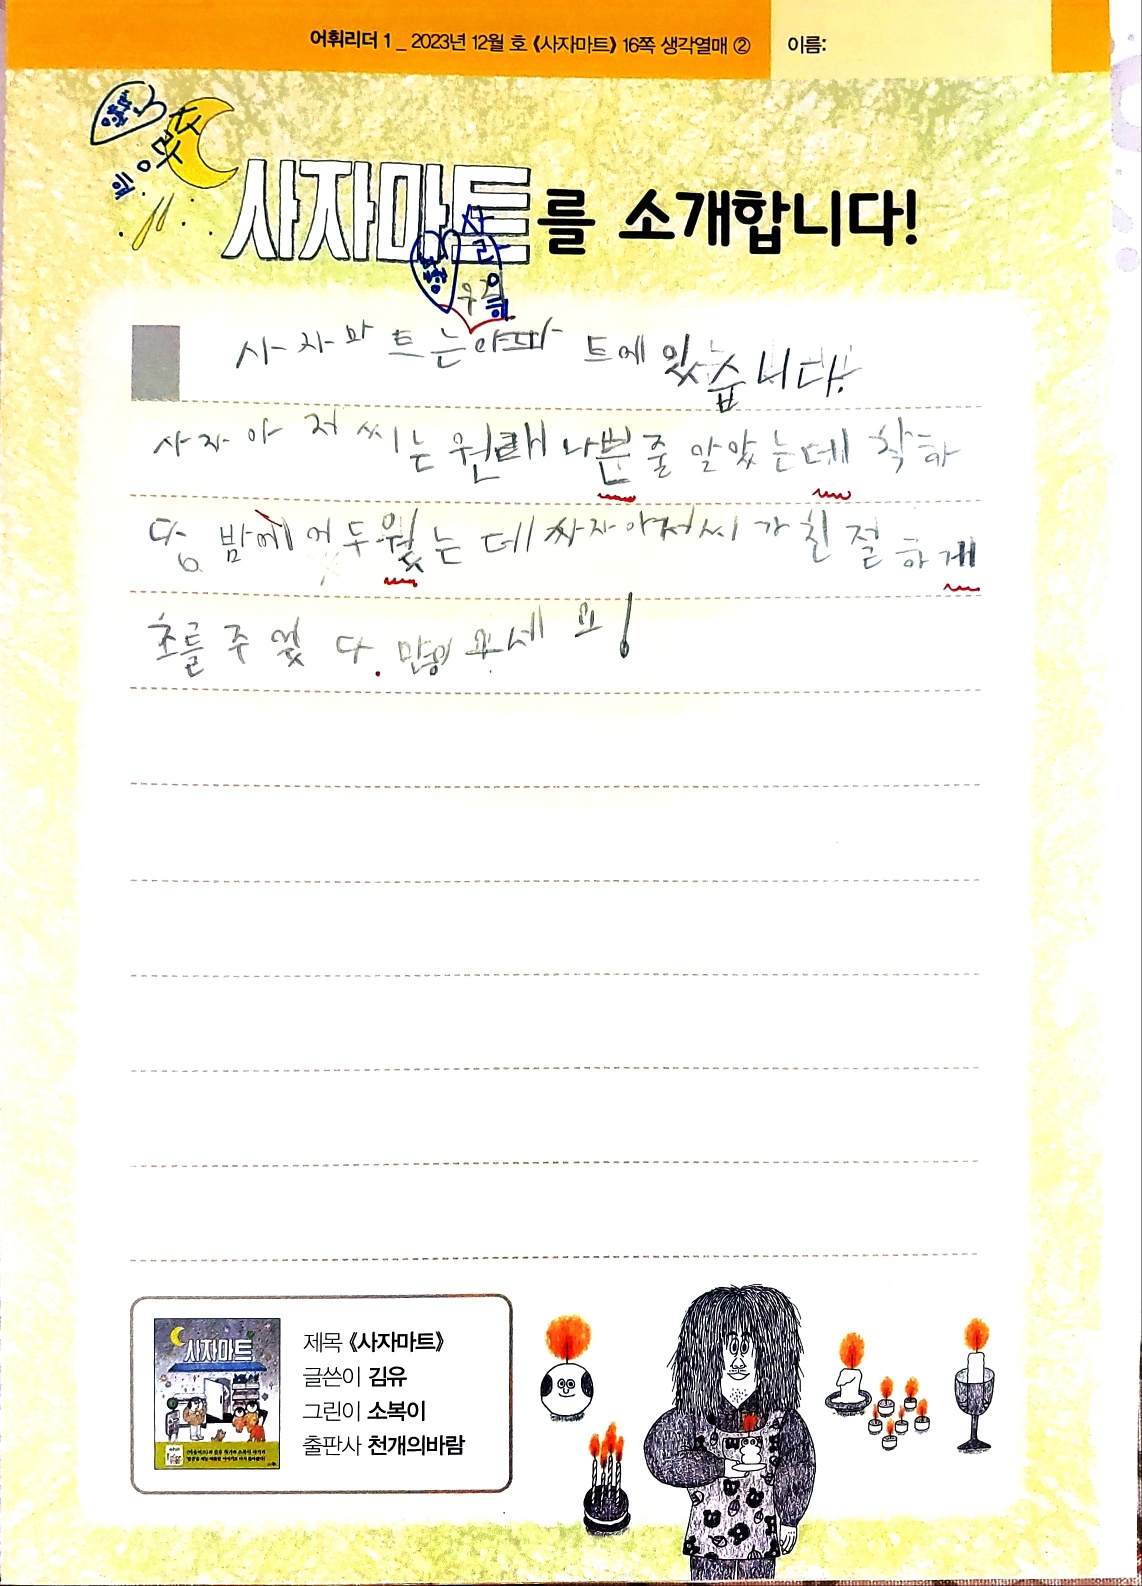 어휘리더 1 _ 2023년 12월 호 《사자마트》 16쪽 생각열매 ② 이름:
사자마트를 소개합니다!
우리
사자마트는 아파트에 있습니다!
사자아저씨는 원래 나뿐줄 알았는데 착하
다 밤에 어두웠는데 싸자아저씨가 친절하게
초를 주었다. 많이 오세요!
사자마트
제목 《사자마트》
글쓴이 김유
그린이 소복이
출판사 천개의바람